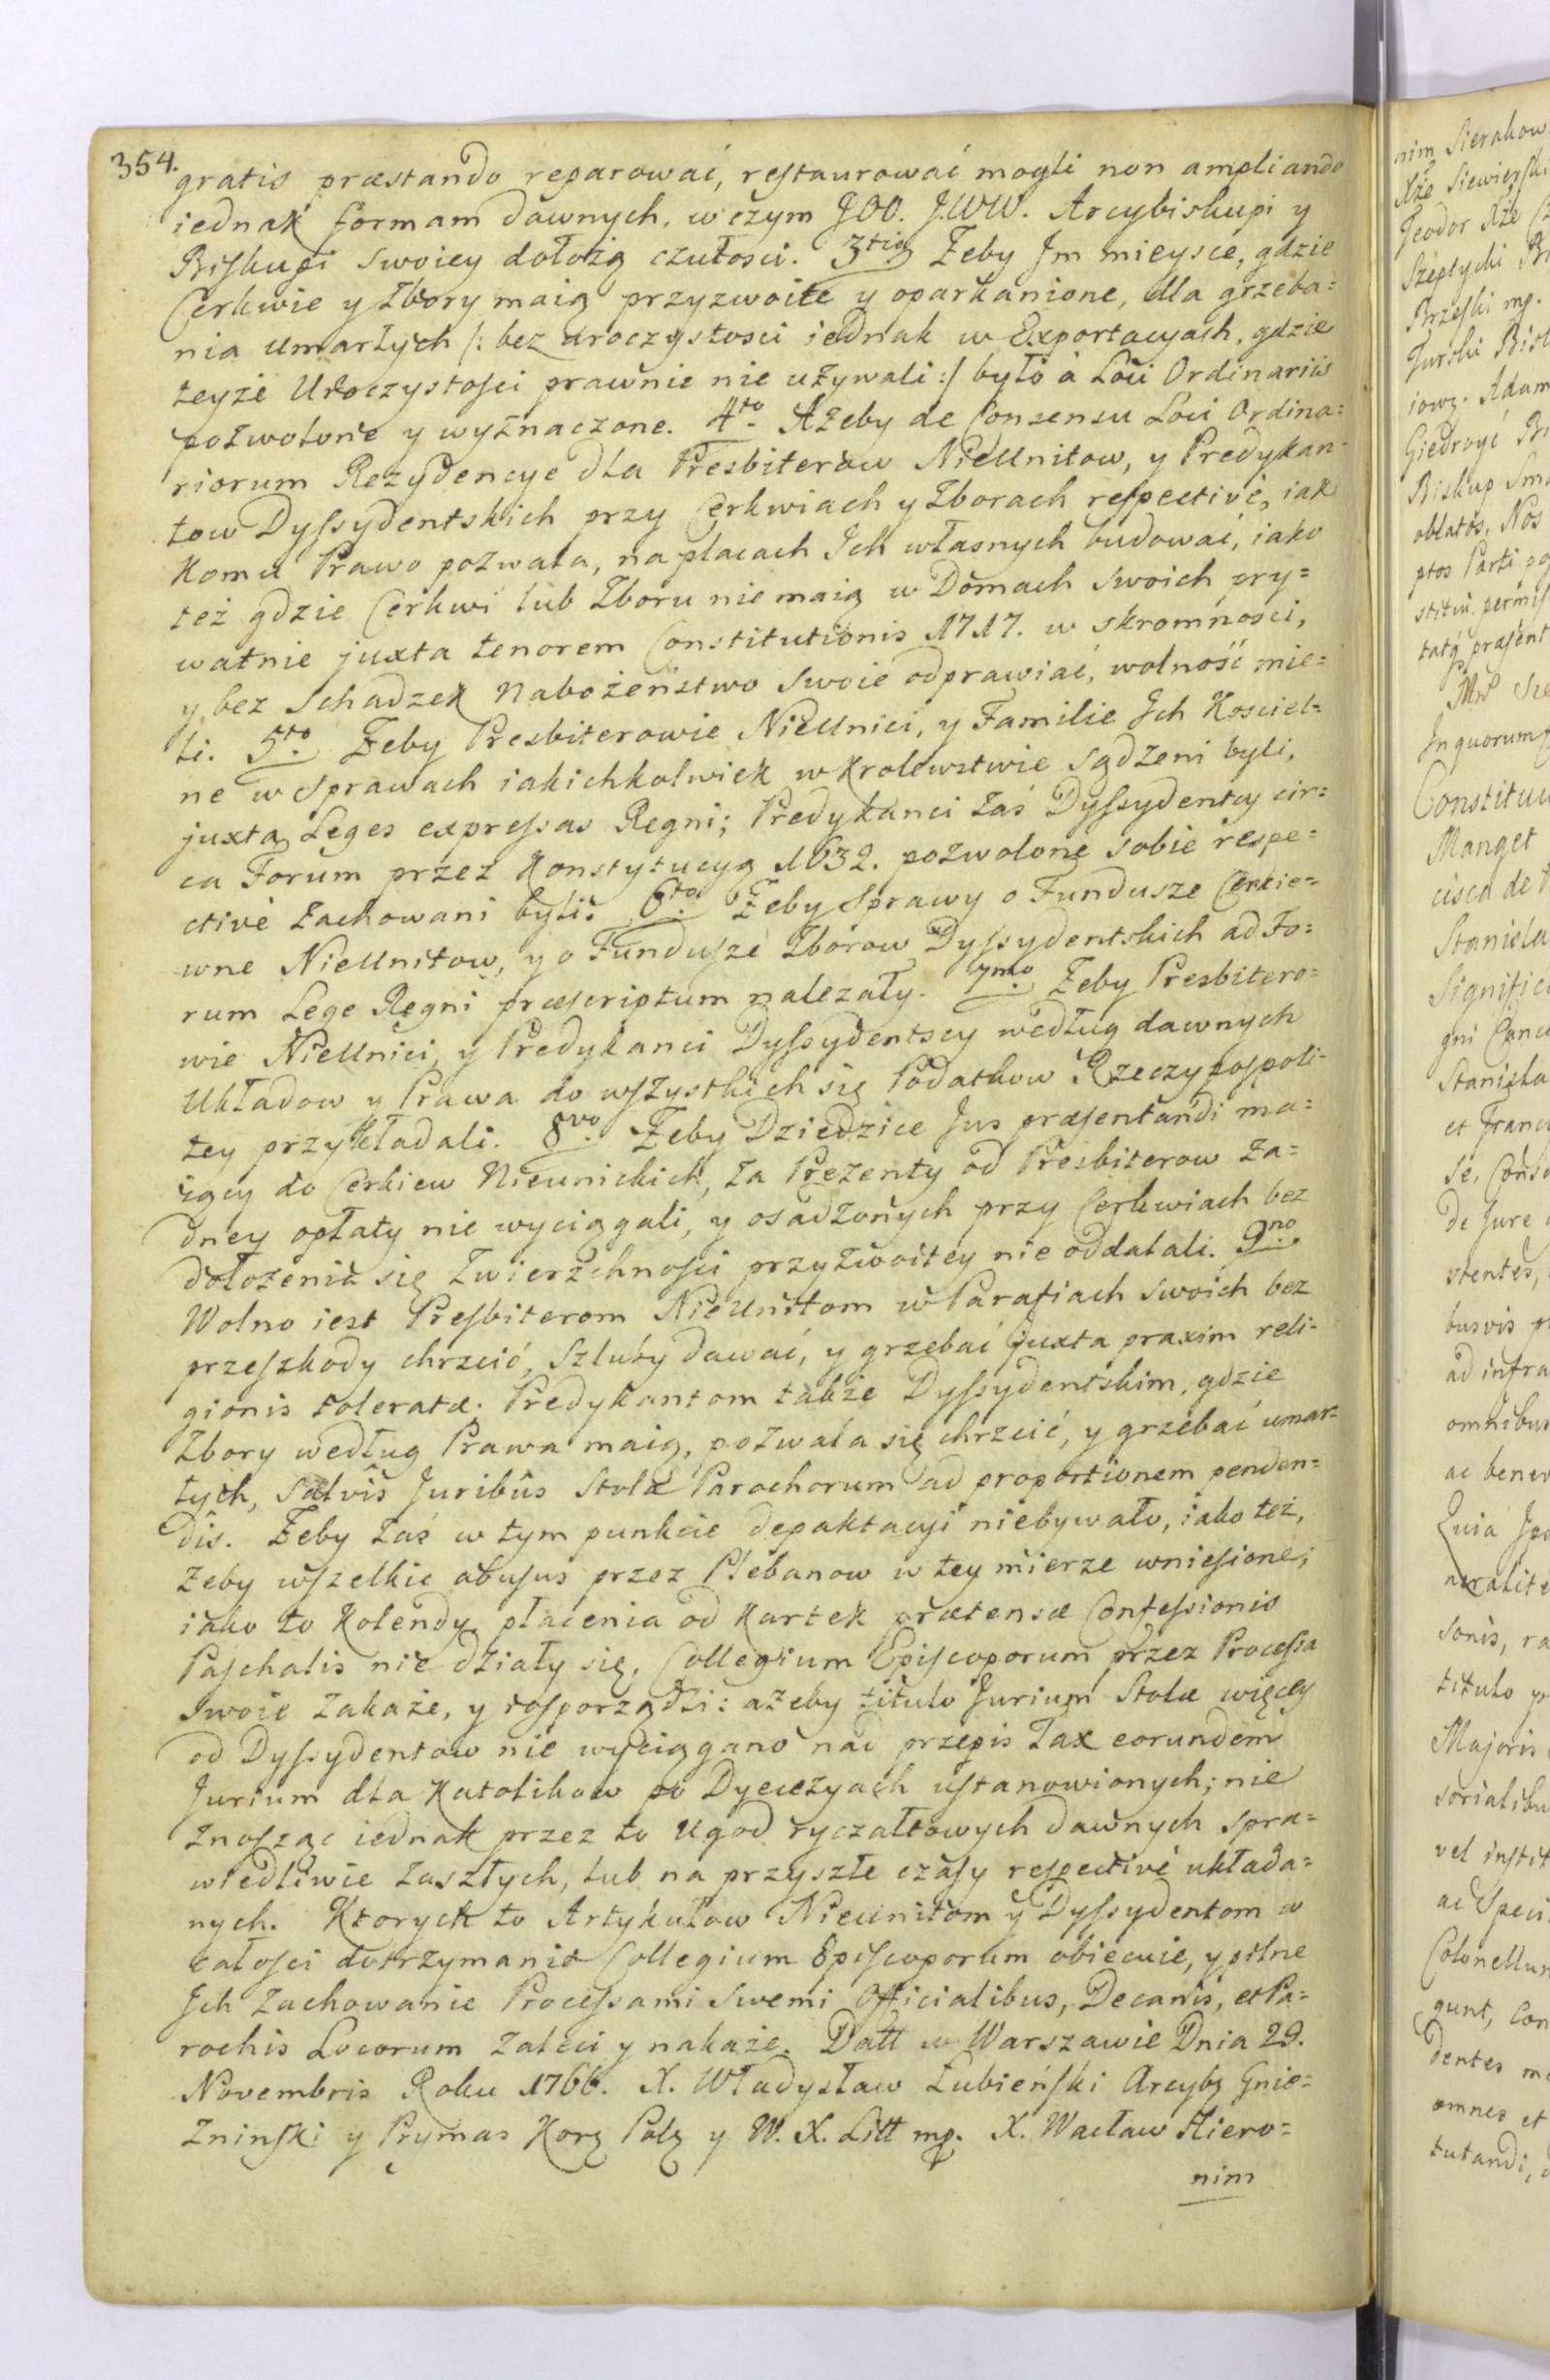 354.
gratis præstando reparować, restaurować mogli non ampliando
iednak formam dawnych, w czym JOO. J.WW. Arcybiskupi y
Biskupi swoiey dołożą czułosci. 3tio Żeby Jm mieysce, gdzie
Cerkwie y Zbory maią przyzwoite y oparkanione, dla grzeba=
nia umarłych /: bez uroczystosci iednak w Exportacyach, gdzie
teyże Uroczystosci prawnie nie używali :/ było à Loci Ordinariis
pozwolone y wyznaczone. 4to Ażeby de Consensu Loci Ordina=
riorum Rezydencye dla Presbiterow NieUnitow, y Predykan=
tow Dyssydentskich przy Cerkwiach y Zborach respectivè, iak
Komu Prawo pozwala, na placach Jch własnych budować, iako
też gdzie Cerkwi lub Zboru nie maią w Domach swoich pry=
watnie juxta tenorem Constitutionis 1717. w skromności,
y bez Schadzek Nabożeństwo swoie odprawiać, wolność mie=
li. 5to Żeby Presbiterowie NieUnici, y Familie Jch Kosciel=
ne w Sprawach iakichkolwiek w Krolewstwie sądzeni byli,
juxta Leges expressas Regni; Predykanci zaś Dyssydentcy cir=
ca Forum przez Konstytucyą 1632. pozwolone sobie respe=
ctivè zachowani byli. 6to Żeby Sprawy o Fundusze Cerkie=
wne NieUnitow, y o Fundusze Zborow Dyssydentskich ad Fo=
rum Lege Regni præscriptum należały. 7mo Żeby Presbitero=
wie NieUnici, y Predykanci Dyssydentscy według dawnych
Układow y Prawa do wszystkich się Podatkow Rzeczypospoli=
tey przykładali. 8vo Żeby Dziedzice Jus præsentandi ma=
iący do Cerkiew Nieunickich, za Prezenty od Presbiterow ża=
dney opłaty nie wyciągali, y osadzonych przy Cerkwiach bez
dołożenia się Zwierzchności przyzwoitey nie oddalali. 9no
Wolno iest Presbiterom NieUnitom w Parafiach swoich bez
przeszkody chrzcić, Szluby dawać, y grzebać juxta praxim reli=
gionis toleratæ. Predykantom także Dyssydentskim, gdzie
Zbory według Prawa maią, pozwala się chrzcić, y grzebać umar=
łych, salvis Juribus Stolæ Parochorum ad proportionem penden=
dis. Żeby zaś w tym punkcie depaktacyi niebywało, iako też,
żeby wszelkie abusus przez Plebanow w tey mierze wniesione;
iako to Kolendy, płacenia od Kartek prætensæ Confessionis
Paschalis nie działy się, Collegium Episcoporum przez Processa
swoie zakaże, y rosporządzi: ażeby titulo Jurium Stolæ więcey
od Dyssydentow nie wyciągano nad przepis Tax eorundem
Jurium dla Katolikow po Dyecezyach ustanowionych; nie
znosząc iednak przez to Ugod ryczałtowych dawnych spra=
wiedliwie zaszłych, lub na przyszłe czasy respectivè układa=
nych. Ktorych to Artykułow Nieunitom y Dyssydentom w
całości dotrzymania Collegium Episcoporum obiecuie, y pilne
Jch zachowanie Processami swemi Officialibus, Decanis, et Pa=
rochis Locorum zaleci y nakaże. Datt w Warszawie Dnia 29.
Novembris Roku 1766. X. Władysław Łubieński Arcybp Gnie=
zninski y Prymas Korę Polę y W. X. Litt mp. X. Wacław Hiero=
nim
nim Sierakow
Xże Siewierski
Teodor Xże Cz
Szeptycki Bi
Brzeski mp.
Turski Bisk
iowę. Adam
Giedroyć Bi
Biskup Smo
oblatos, Nos
ptos Parti po
stitui permis
tatę præsent
In quorum f
Constitu
Manget
cisca de
Stanisla
Signific
gni Canc
Stanisla
et Franc
se, Conse
de Jure
stentes,
busvis p
ad infra
omnibus
ac benev
Quia Ips
neralite
sonis, ra
titulo p
Majoris
sorialibu
vel instit
ac Speci
Colonellun
gunt, con
dentes m
omnes et
tutandi,